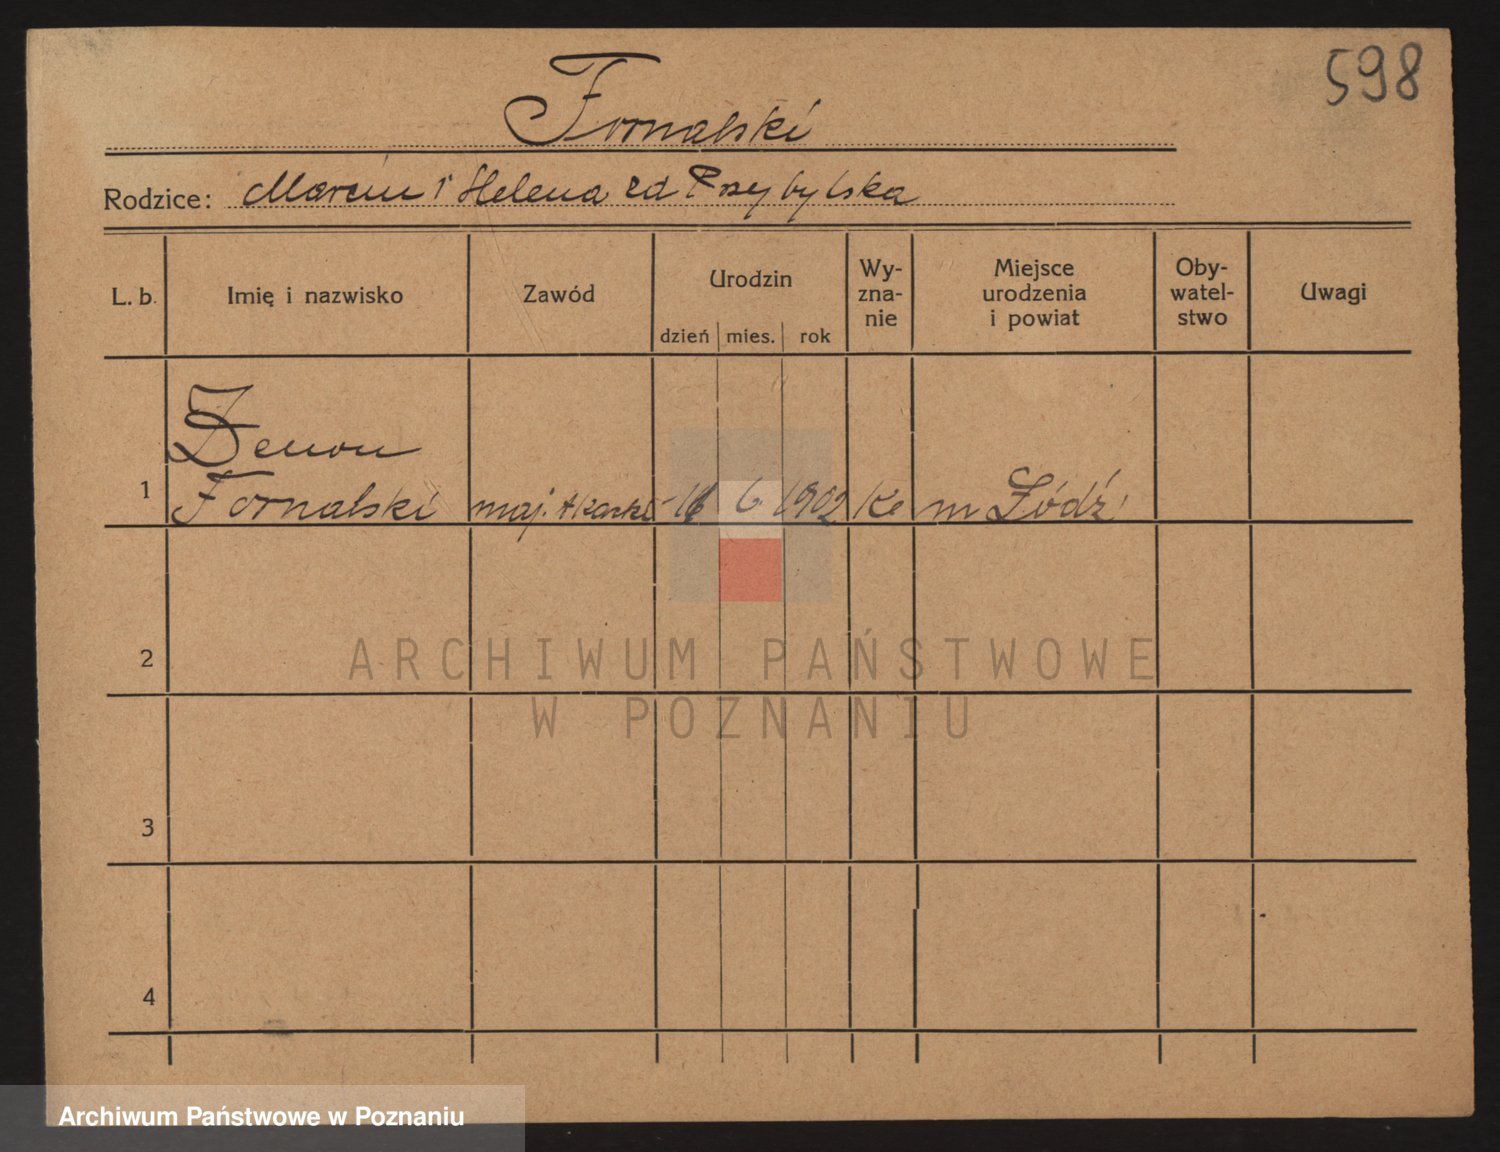 598
Fornalski
Rodzice: Marcin i Helena zd Przybylska
L. b.
Imię i nazwisko
Zawód
Urodzin
dzień mies. rok
Wy-
zna-
nie
Miejsce
urodzenia
i powiat
Oby-
watel-
stwo
Uwagi
Zenon
1 Fornalski maj. tkacki 6 1902 Kc m Łódź
2
3
4
ARCHIWUM PAŃSTWOWE
W POZNANIU
Archiwum Państwowe w Poznaniu